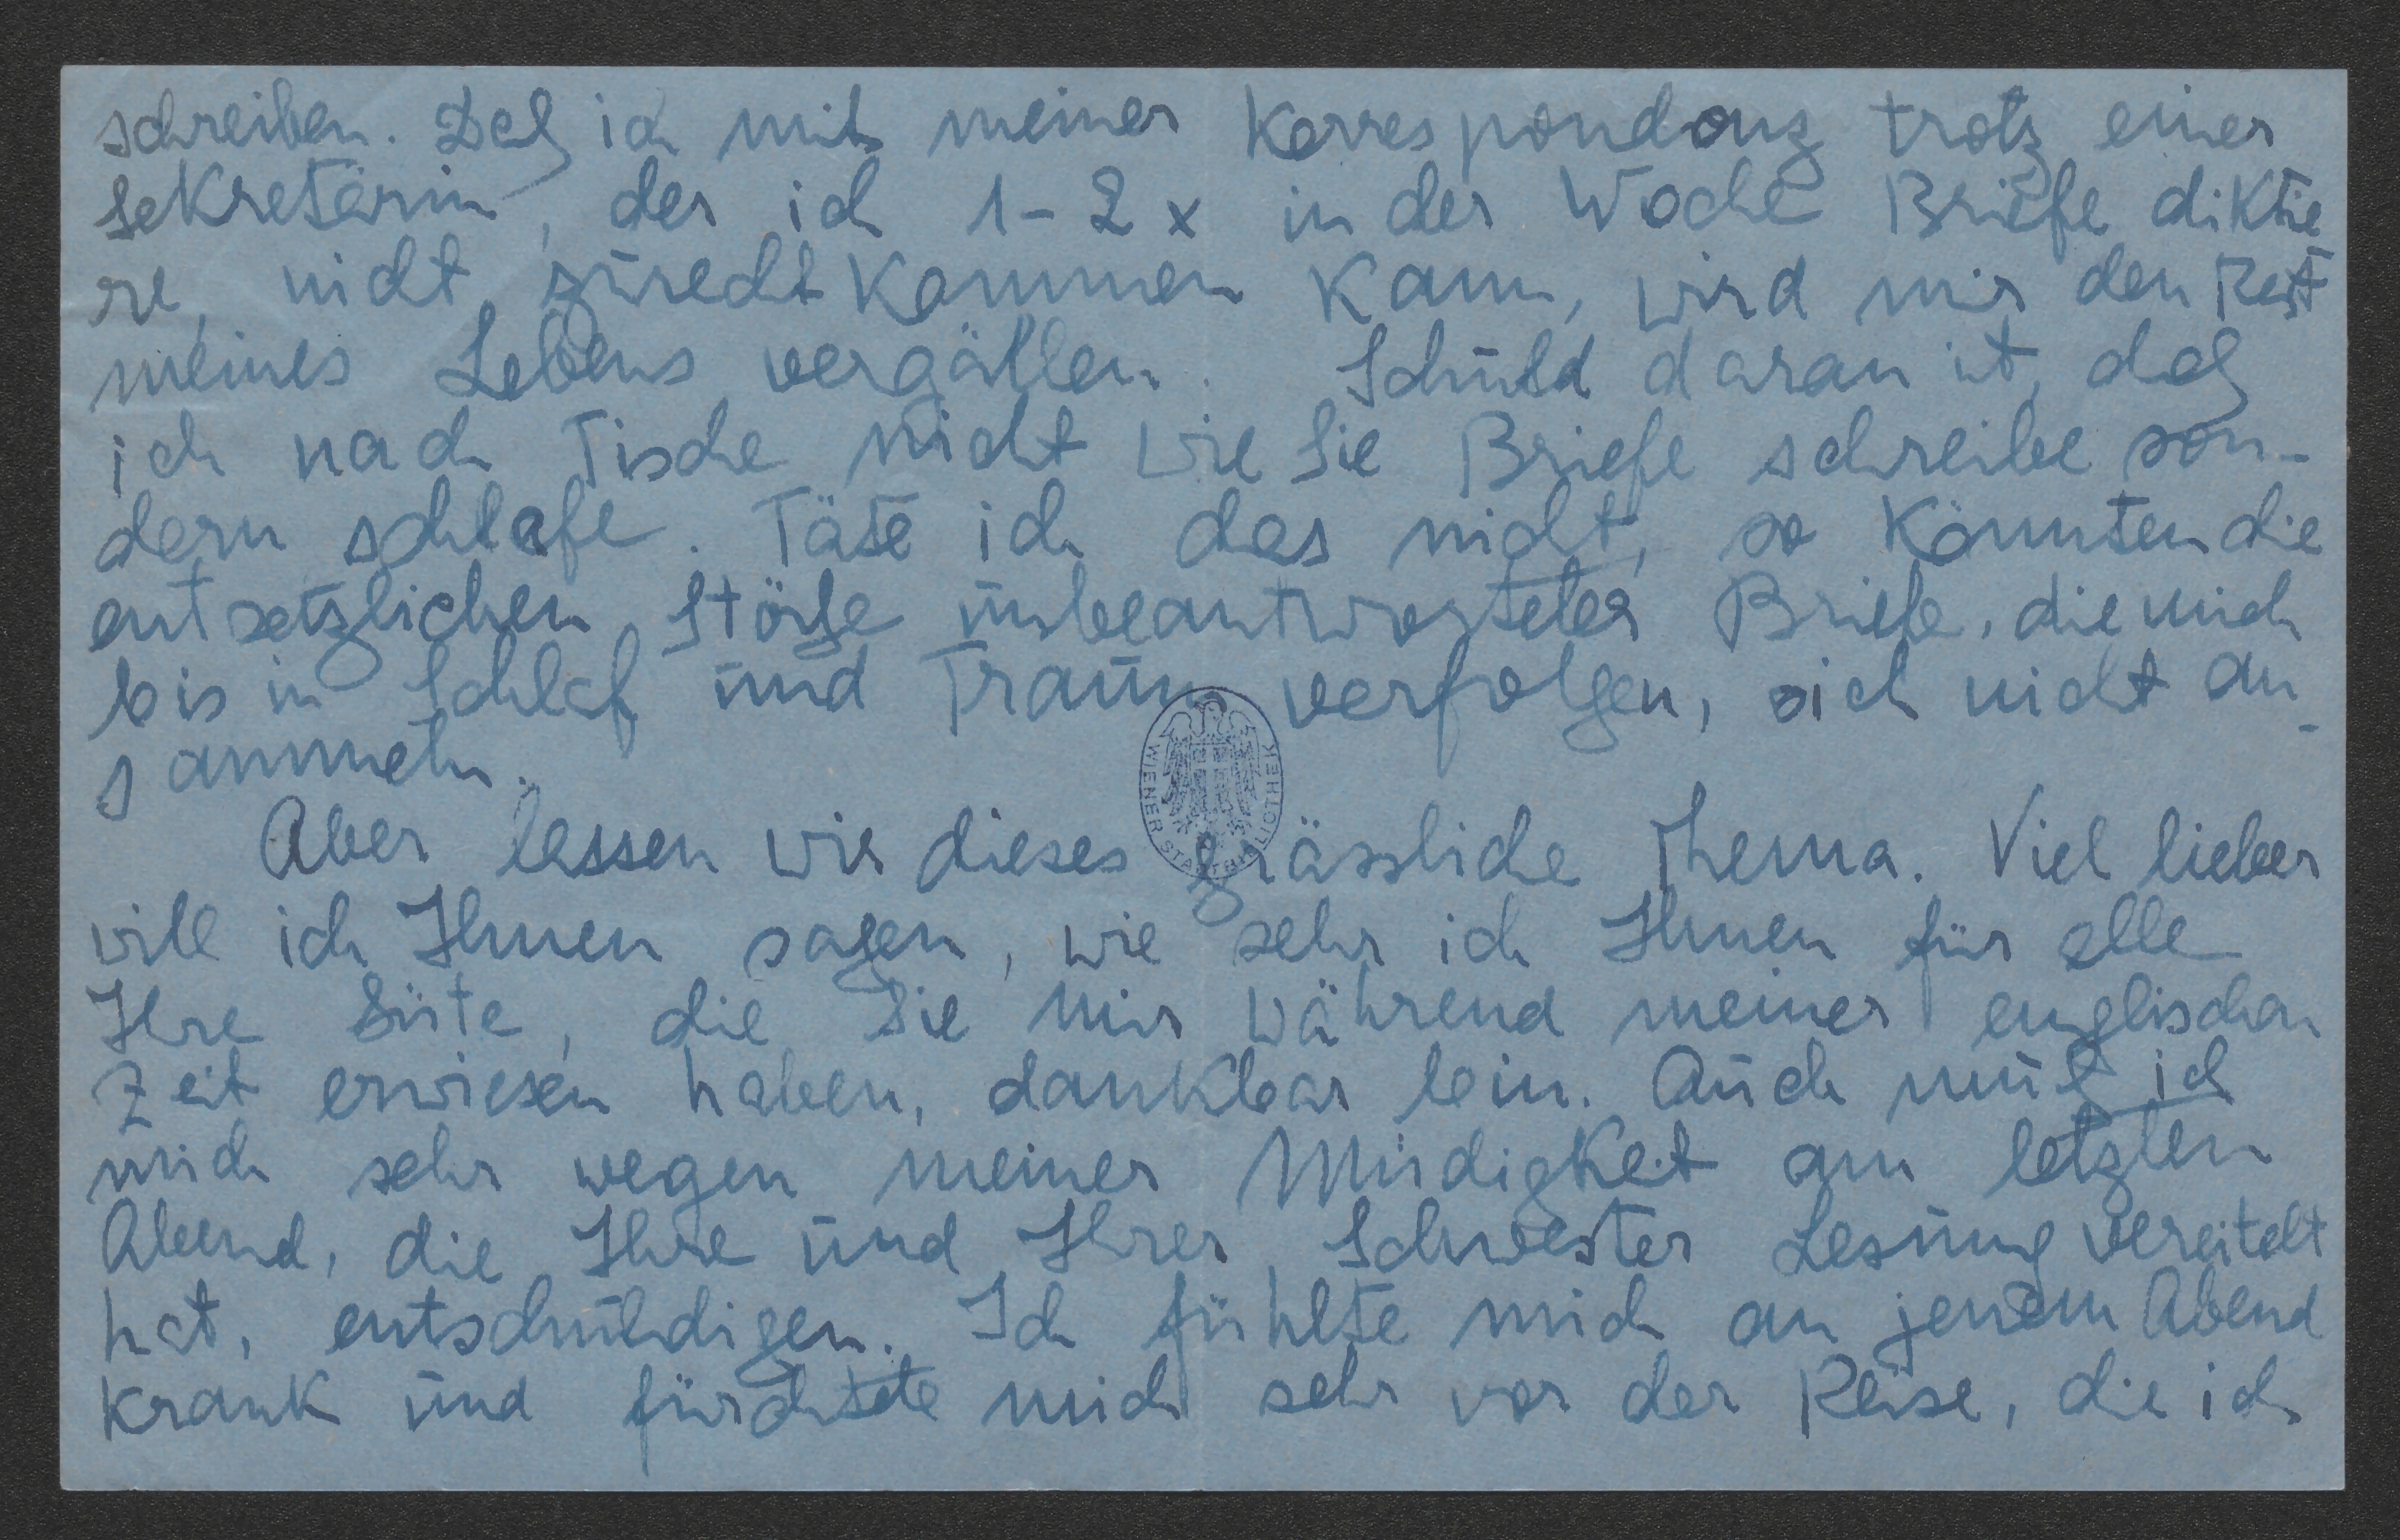 schreiben. Daß ich mit meiner Korrespondenz trotz einer
Sekretärin, der ich 1-2 x in der Woche Briefe diktie
re, nicht zurecht kommen kann, wird mir den Rest
meines Lebens vergällen. Schuld daran ist, daß
ich nach Tische nicht wie Sie Briefe schreibe son-
dern schlafe. Täte ich das nicht, so könnten die
entsetzlichen Stöße unbeantworteter Briefe, die mich
bis in Schlaf und Traum verfolgen, sich nicht an-
sammeln.
Aber lassen wir dieses grässliche Thema. Viel lieber
will ich Ihnen sagen, wie sehr ich Ihnen für alle
Ihre Güte, die Sie mir während meiner englischen
Zeit erwiesen haben, dankbar bin. Auch muß ich
mich sehr wegen meiner Müdigkeit am letzten
Abend, die Ihre und Ihrer Schwester Lesung vereitelt
hat, entschuldigen. Ich fühlte mich an jenem Abend
krank und fürchtete mich sehr vor der Reise, die ich
WIENER STADTBIBLIOTHEK